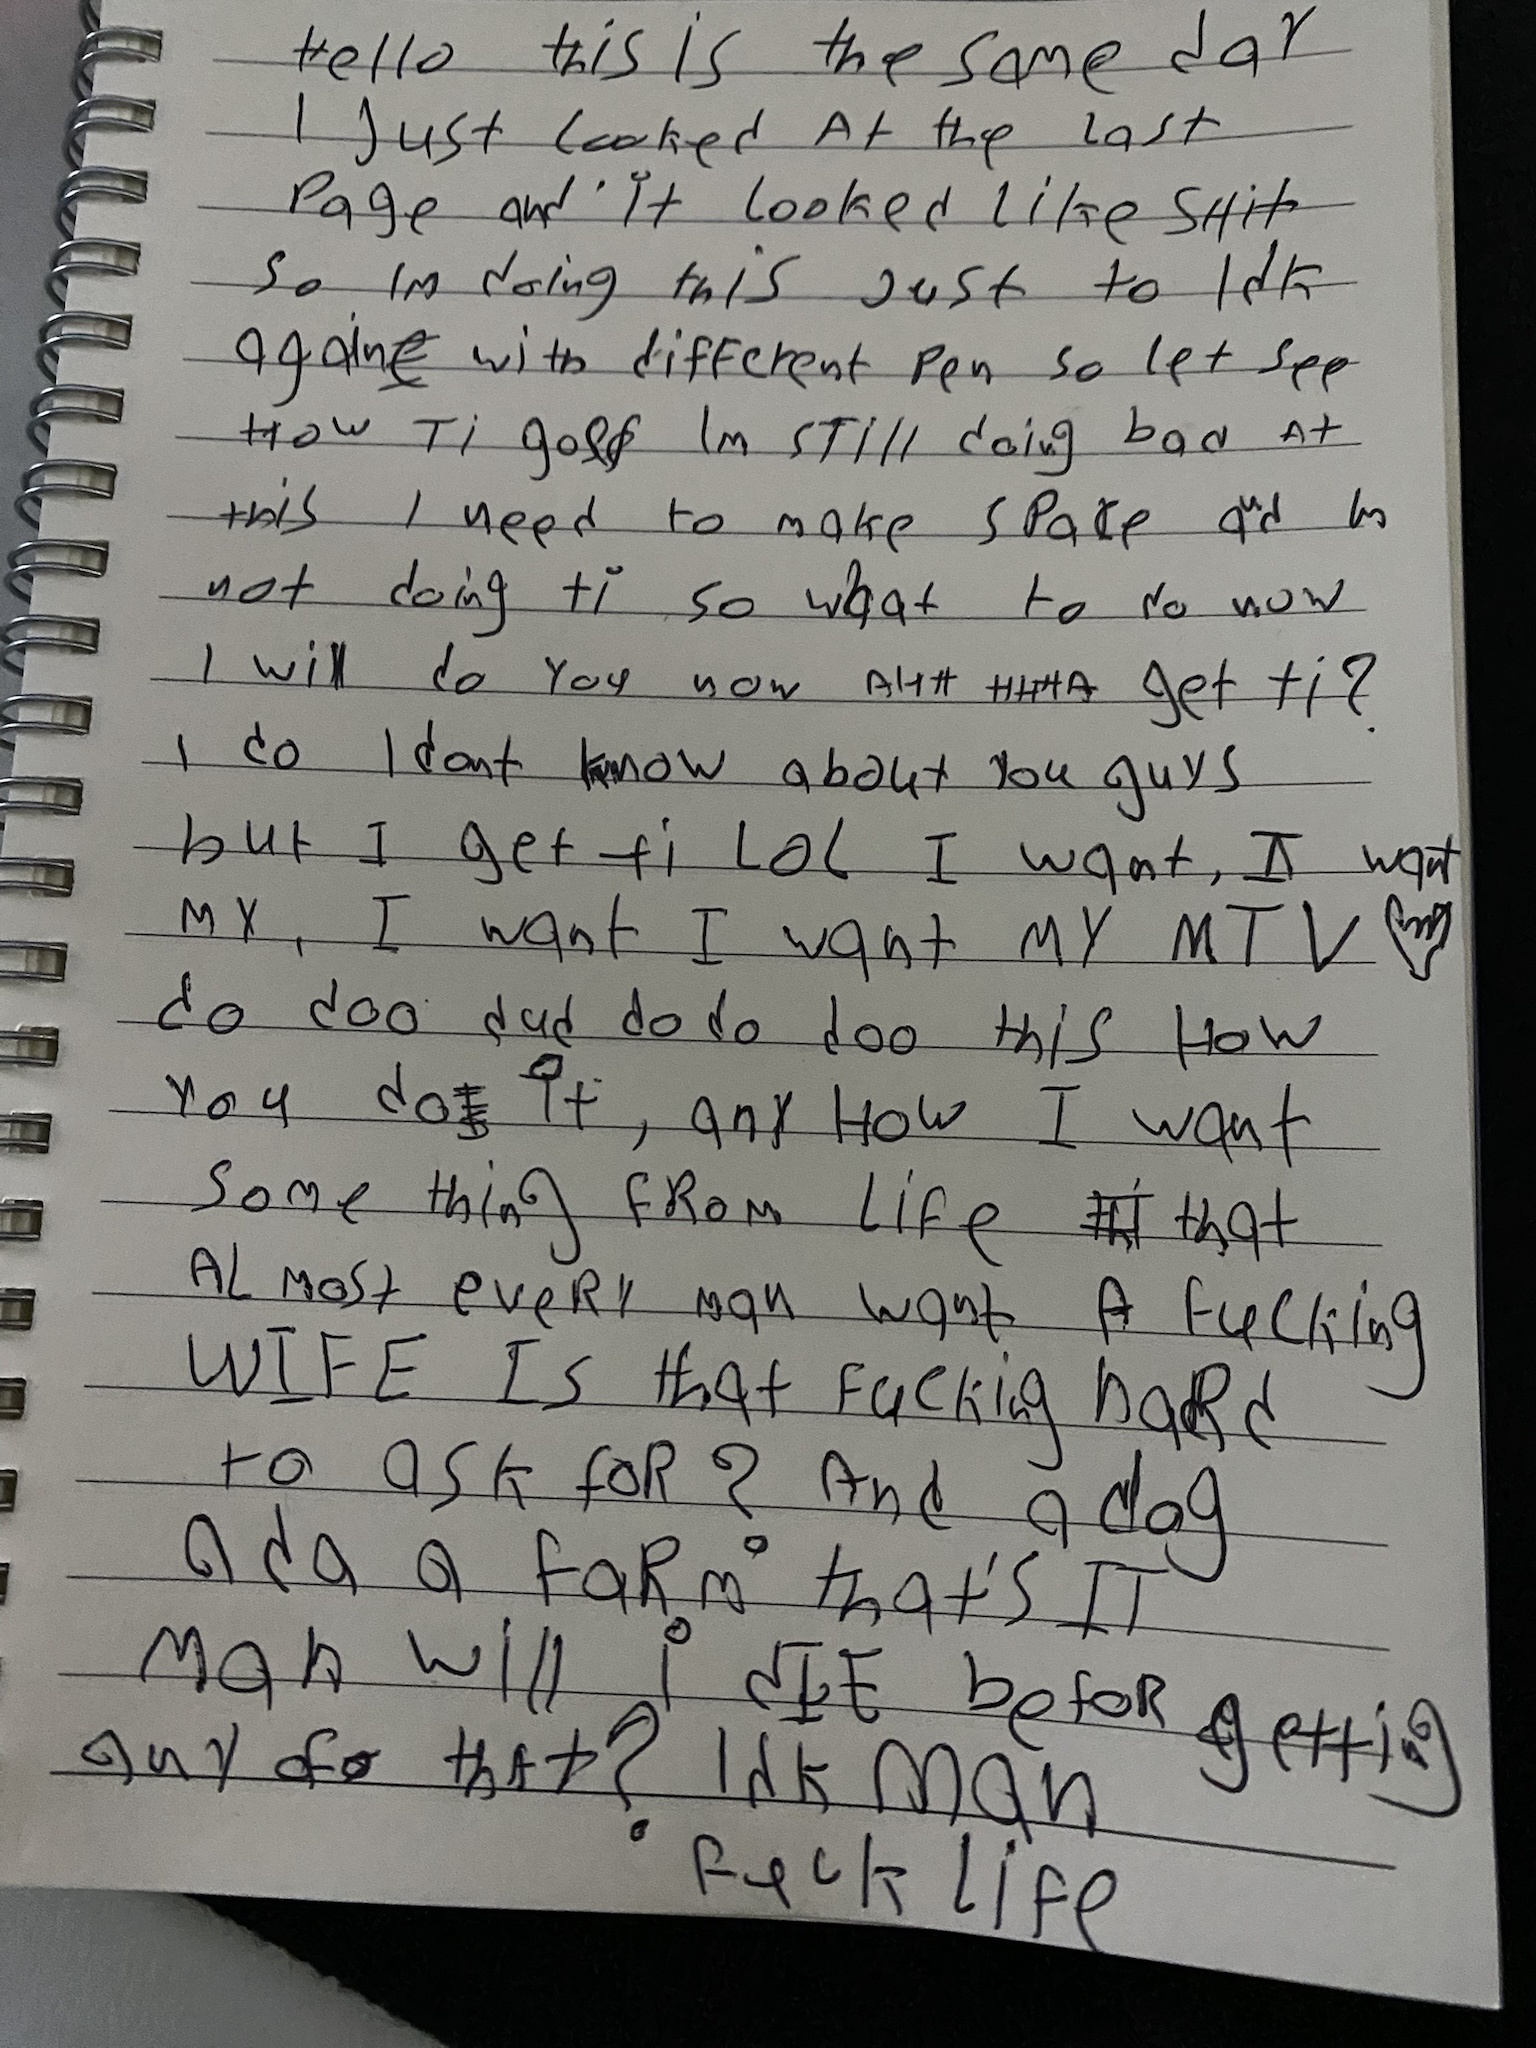 Hello this is the same day
I Just looked At the last
Page and it looked like SHit
so Im doing this Just to Idk
againe with different Pen so let see
How Ti goes Im STill doing bad At
this I need to make sPace and Im
not doing ti so what to do now
I will do You now AHH HHHA get ti?
I do I dont know about You guys
but I get ti LOL I want, I want
MY, I want I want MY MTV
do doo dud do do doo this How
You do it, any How I want
some thing FROM Life that
ALMost eveRy man want A Fucking
WIFE Is that Fucking haRd
to ask foR? And a dog
ada a FaRm that's IT
Man will i dIE befoR getting
any do thAt? Idk Man
Fuck Life